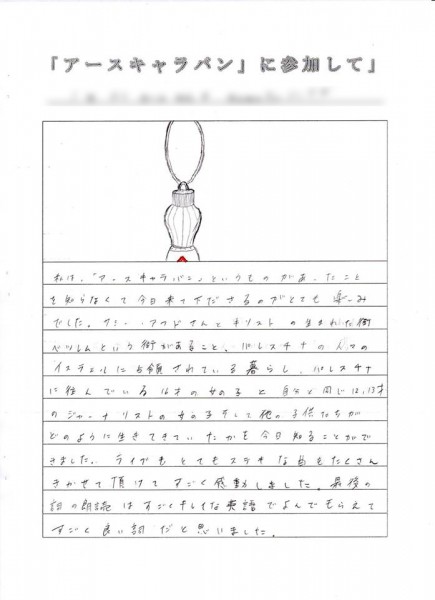 「アースキャラバン」に参加して」
私は、「アースキャラバン」というものがあったこと
を知らなくて今日来て下ださるのがとても楽しみ
でした。サミー・アワドさんとキリストの生まれた街
ベツレヘムという街があること、パレスチナの人々の
イスラエルに占領されている暮らし、パレスチナ
に住んでいる 才の女の子と自分と同じ12,13才
のジャーナリストの女の子そして他の子供たちが
どのように生きてきていたかを今日知ることがで
きました。ライブもとてもステキな曲もたくさん
きかせて頂けてすごく感動しました。最後の
詞の朗読はすごくキレイな英語でよんでもらえて
すごく良い詞だと思いました。